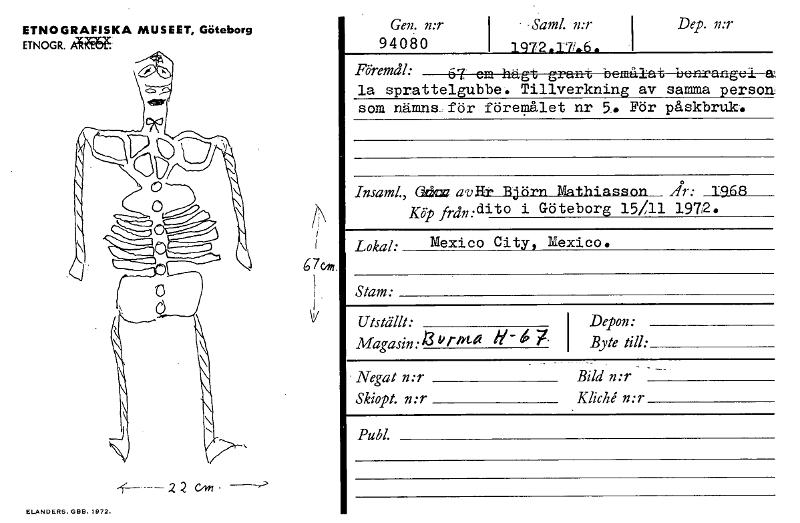 ETNOGRAFISKA MUSEET, Göteborg
ETNOGR. ARKEOL.
67 cm.
22 cm.
ELANDERS. GBB. 1972.
Gen. n:r Saml. n:r Dep. n:r
94080 1972.17.6.
Föremål: 67 cm högt grant bemålat benrangel a
la sprattelgubbe. Tillverkning av samma person
som nämns för föremålet nr 5. För påskbruk.
Insaml., av Hr Björn Mathiasson År: 1968
Köp från: dito i Göteborg 15/11 1972.
Lokal: Mexico City, Mexico.
Stam:
Utställt: Depon:
Magasin: Burma H-67 Byte till:
Negat n:r Bild n:r
Skiopt. n:r Kliché n:r
Publ.